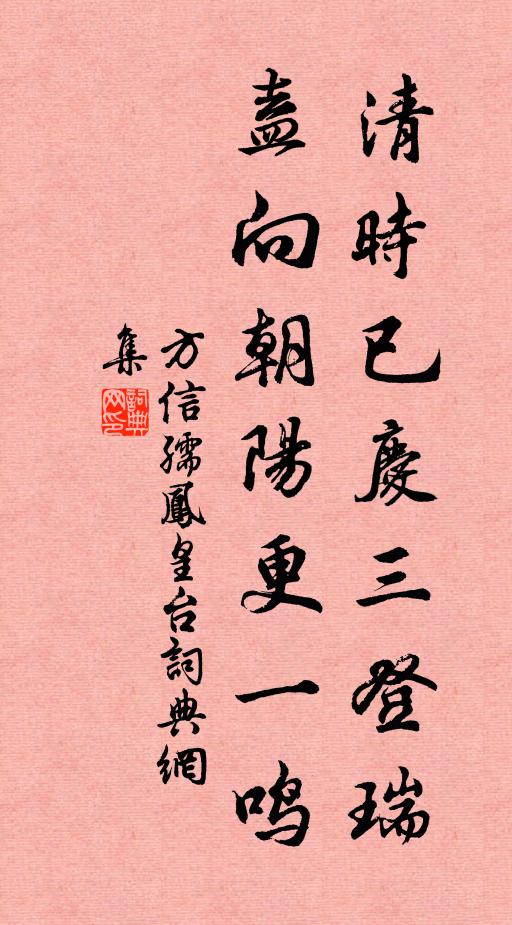 清時已慶三登瑞
盍向朝陽更一鳴
方信孺鳳皇台詞典網
集
詞典網印